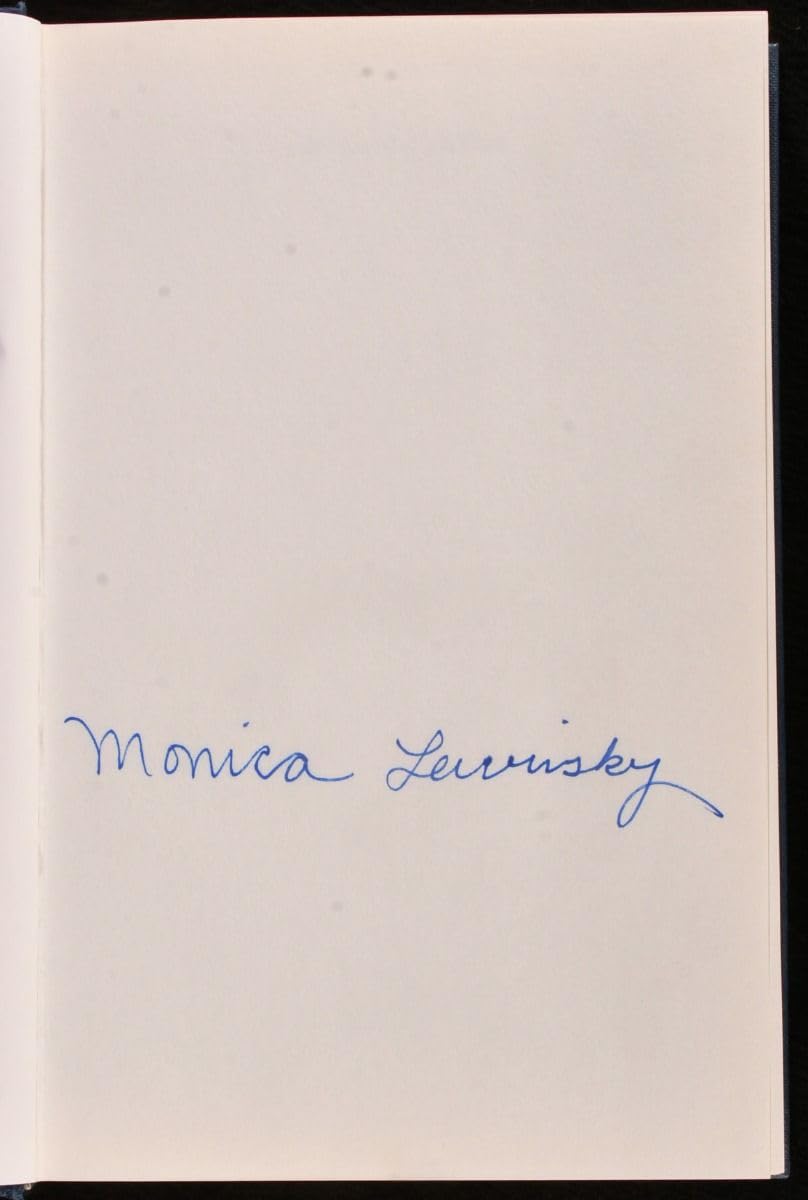 Monica Lewinsky